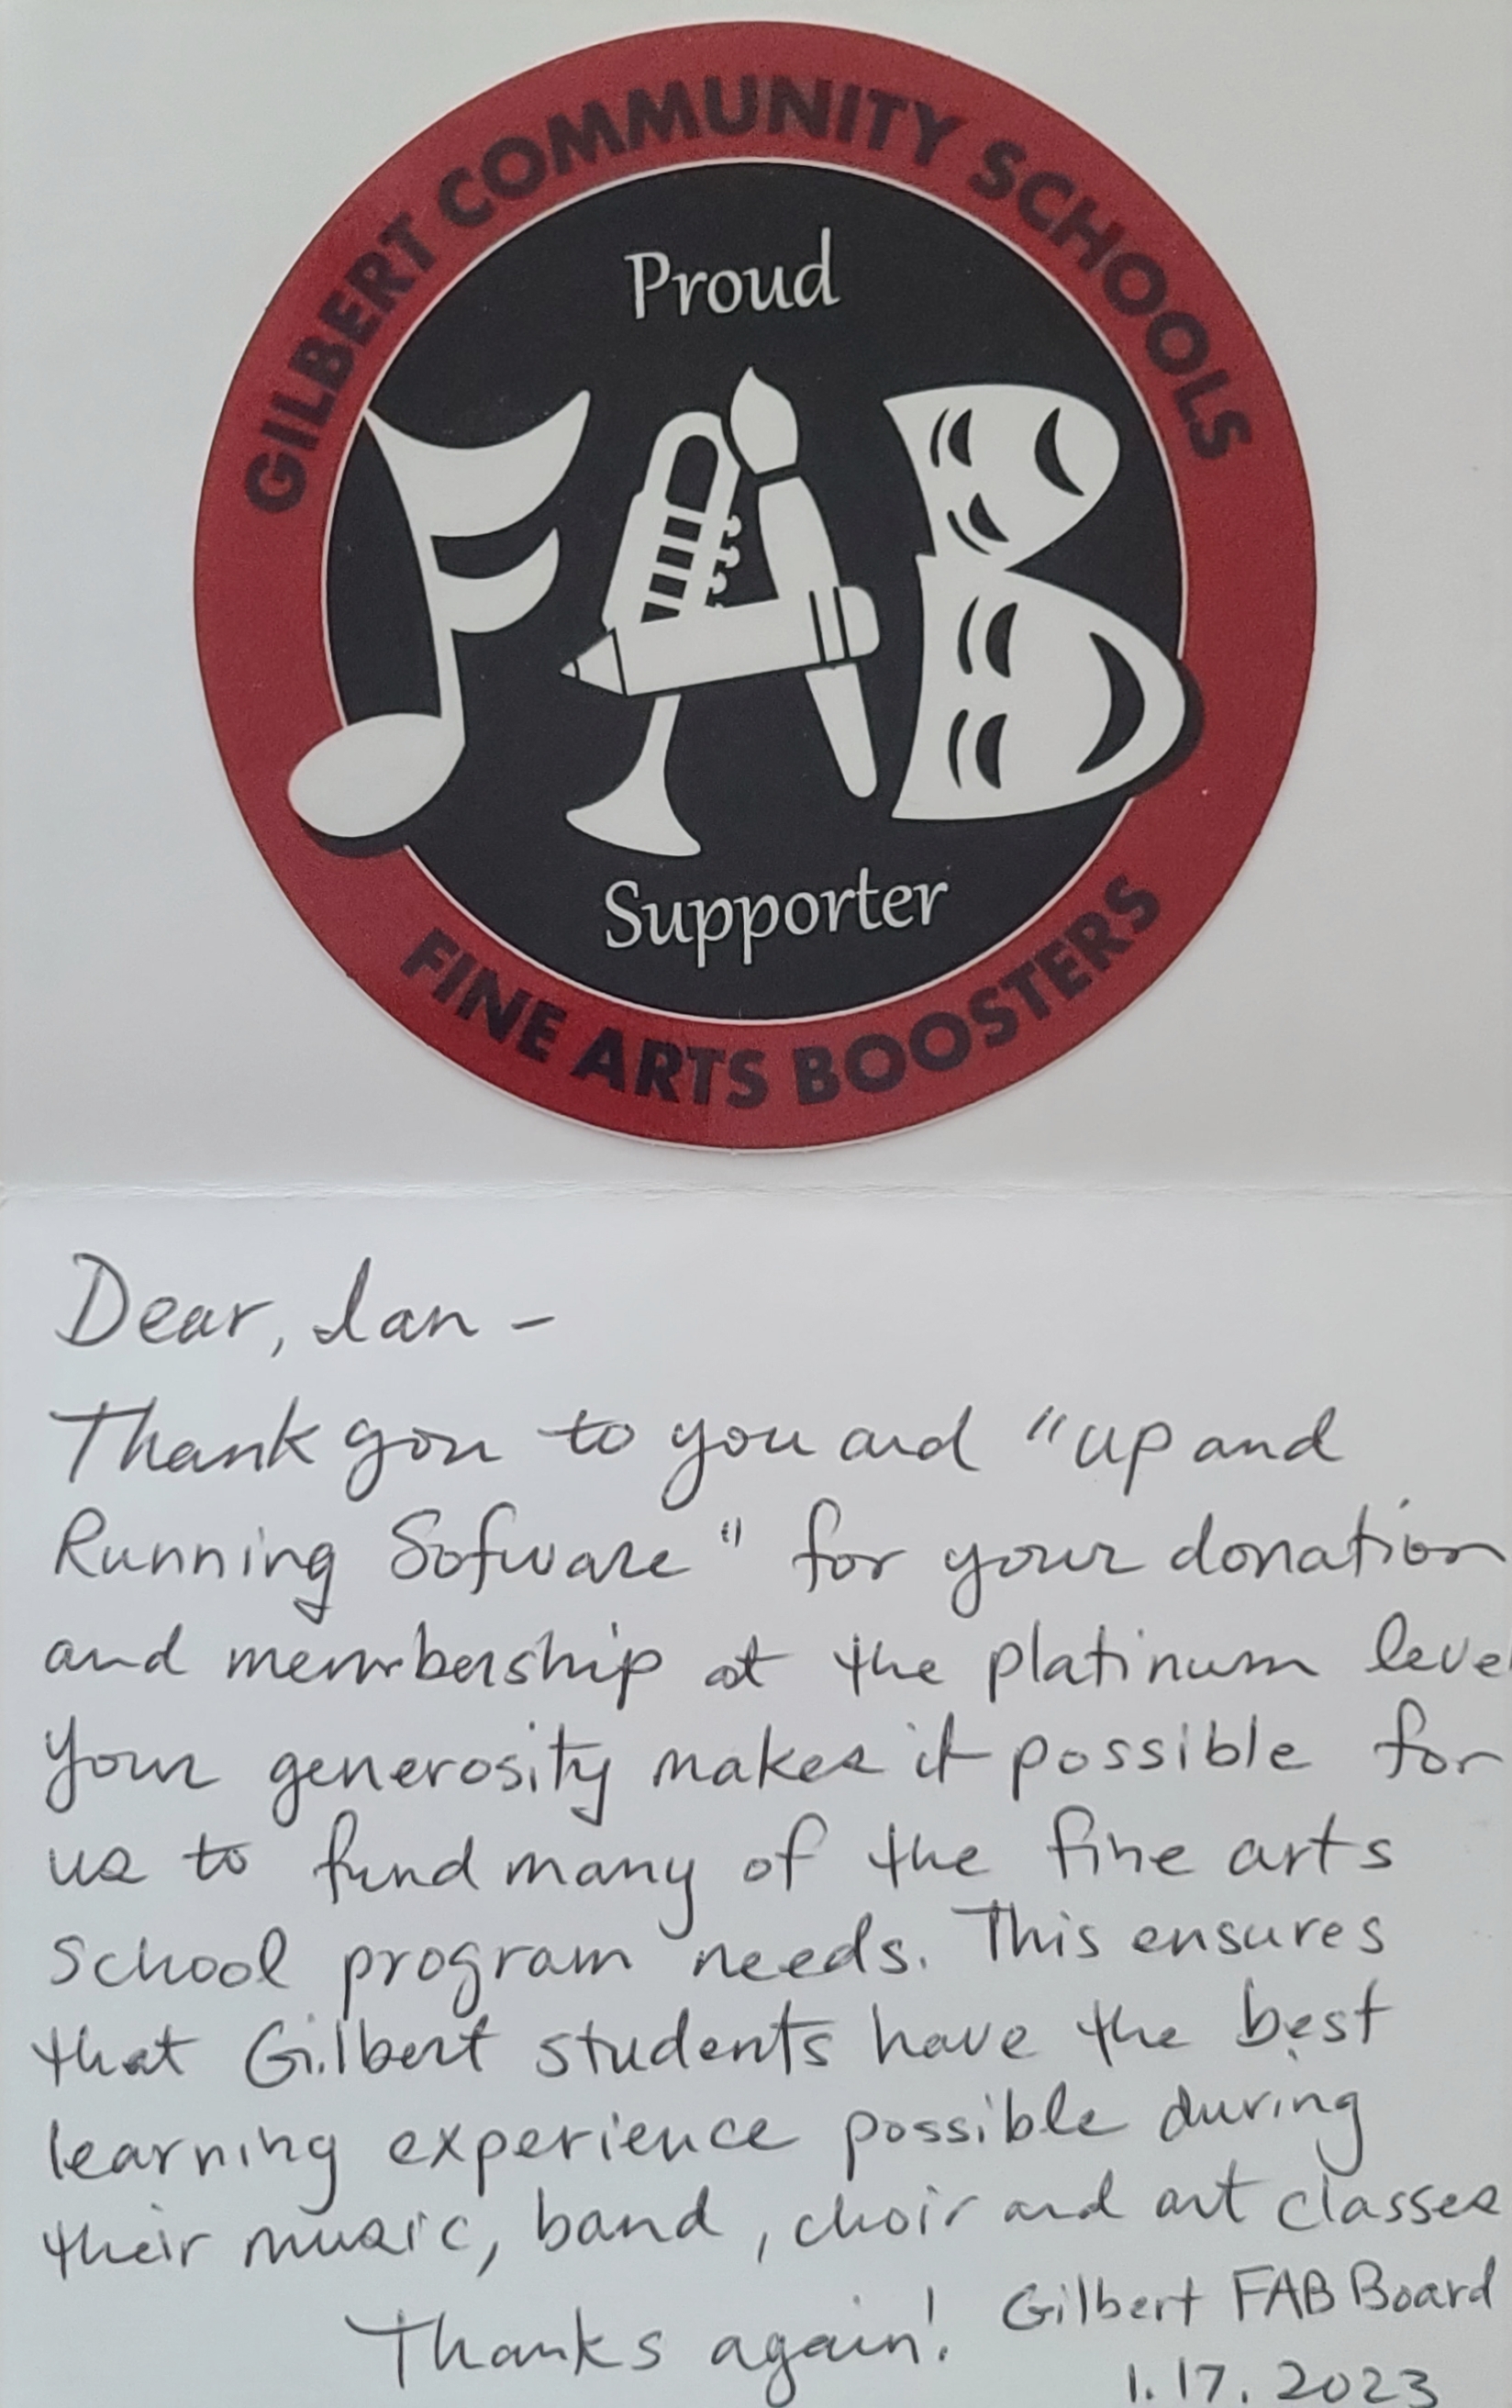 GILBERT COMMUNITY SCHOOLS
Proud
FAB
Supporter
FINE ARTS BOOSTERS
Dear, Ian -
Thank you to you and "up and
Running Sofware" for your donation
and membership at the platinum level
Your generosity makes it possible for
us to fund many of the fine arts
School program needs. This ensures
that Gilbert students have the best
learning experience possible during
their music, band, choir and art classes
Thanks again! Gilbert FAB Board
1.17.2023